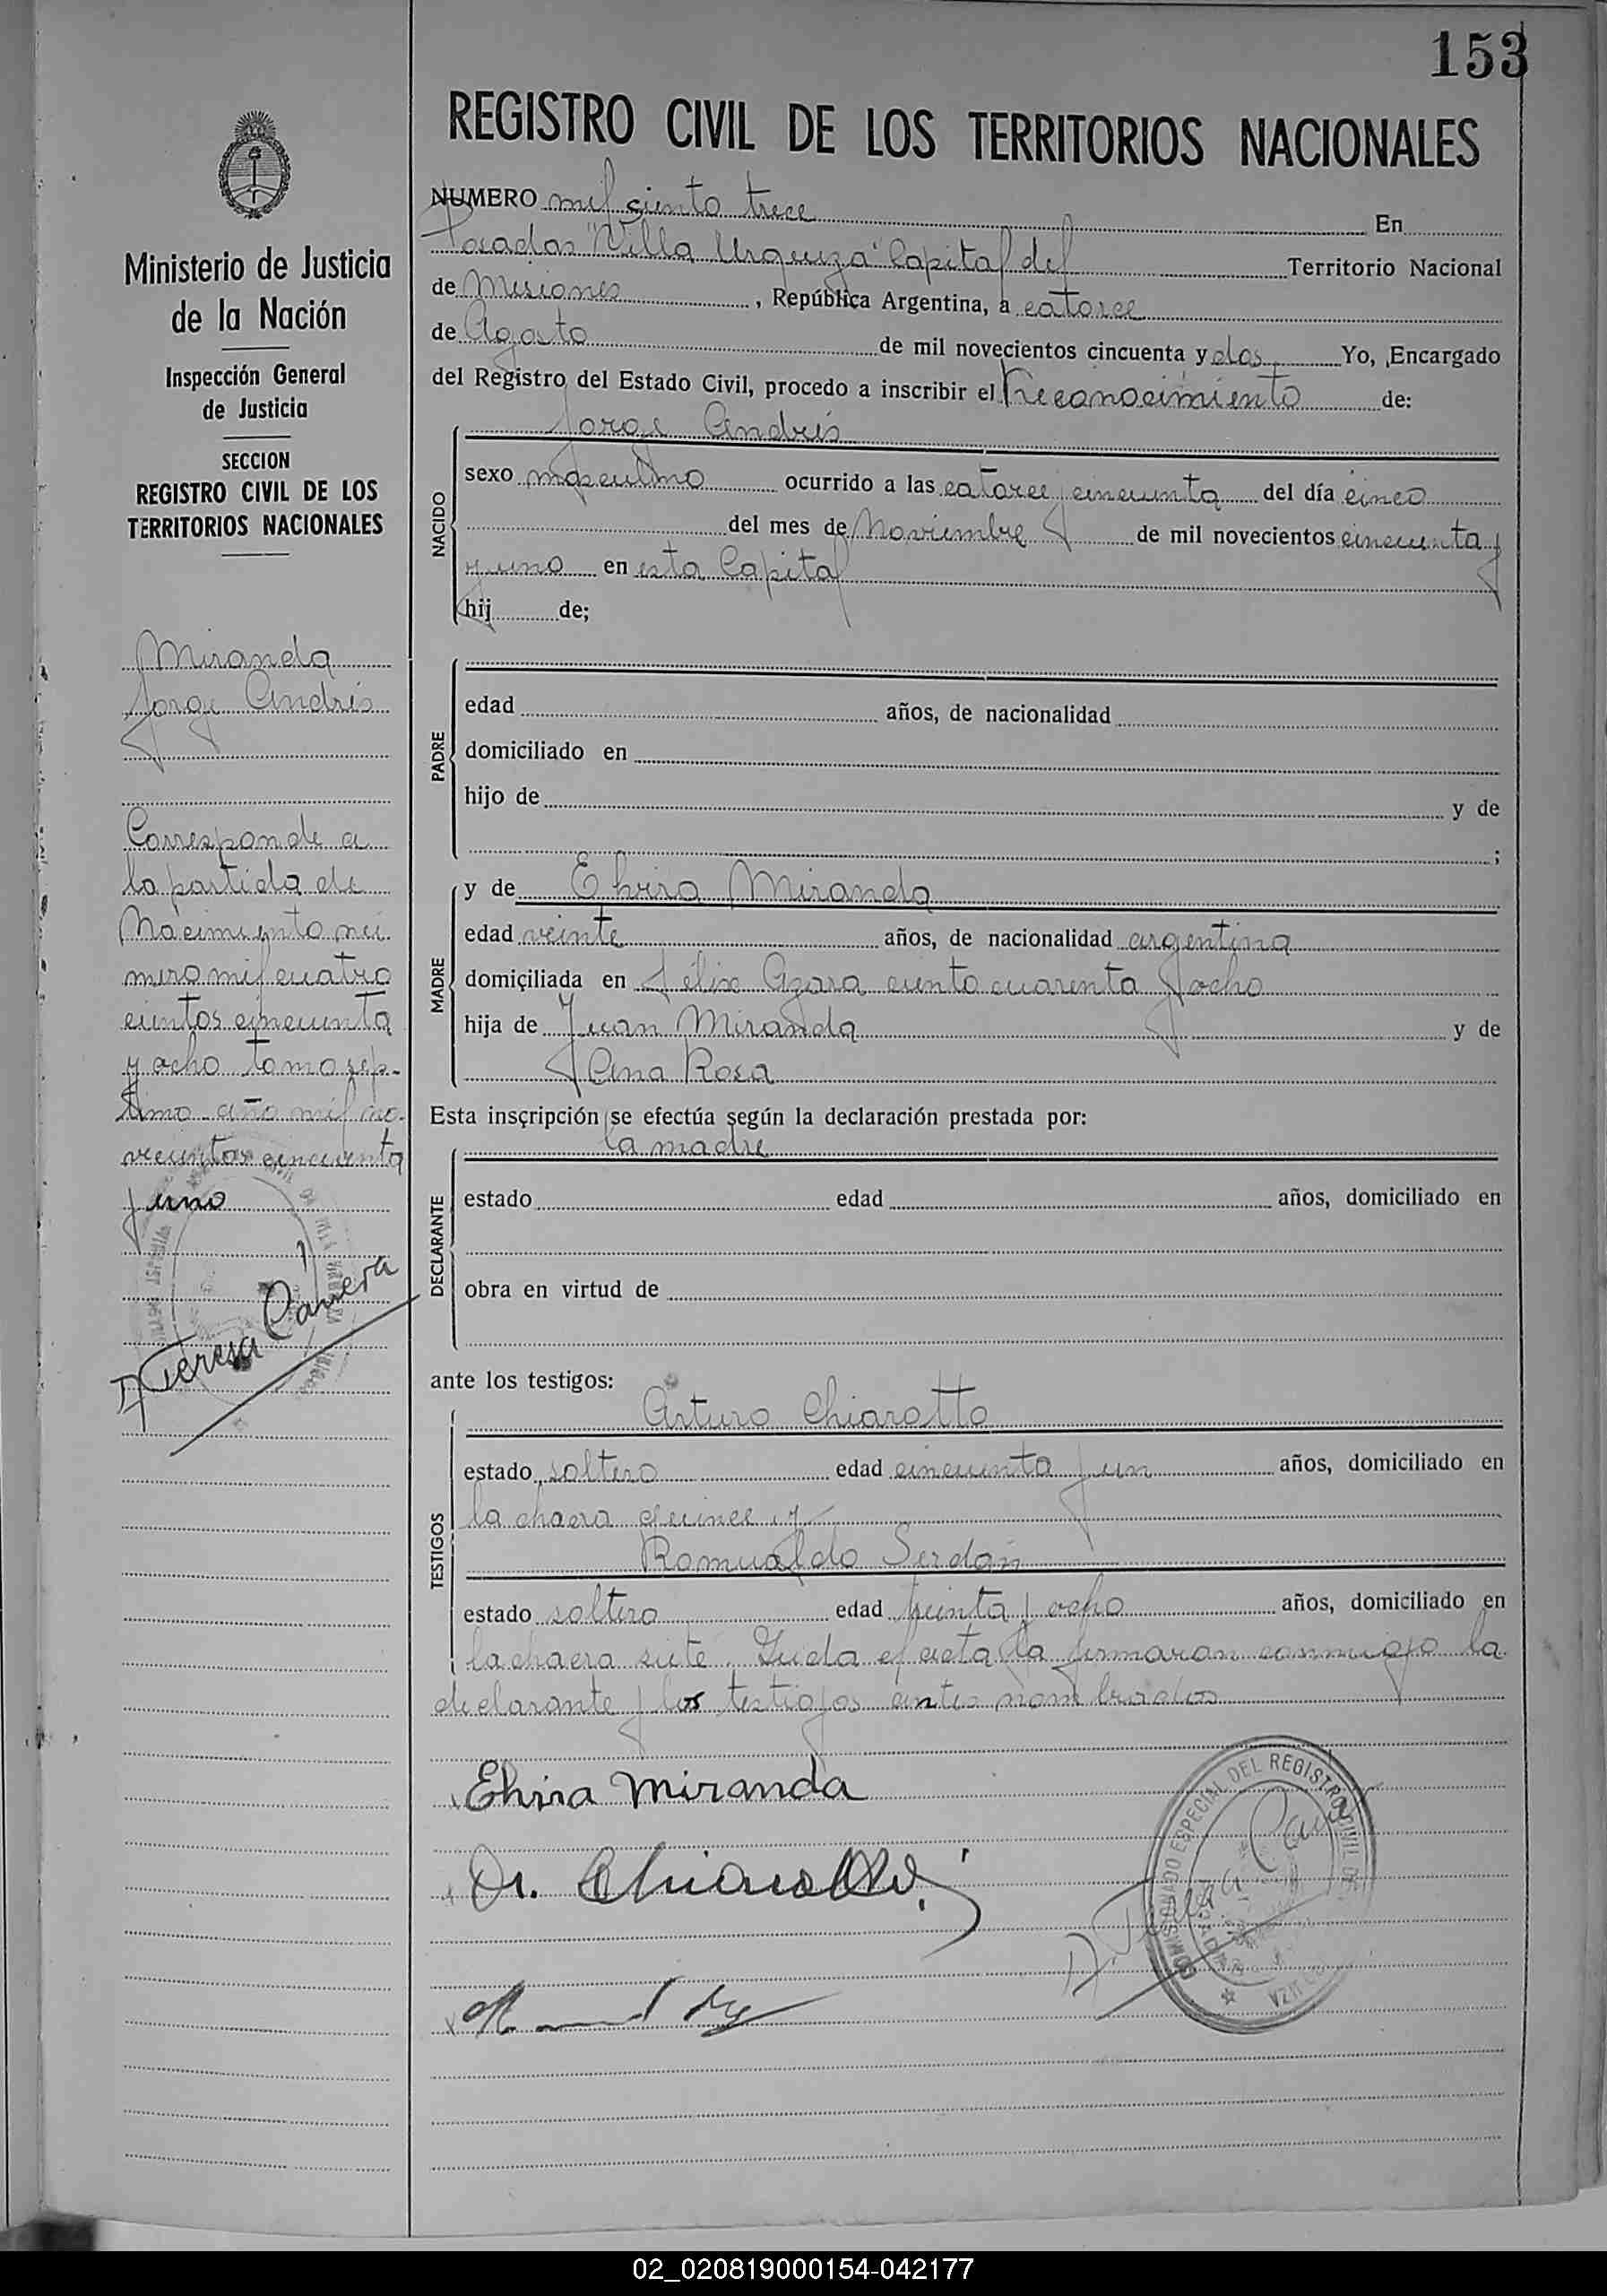 153
REGISTRO CIVIL DE LOS TERRITORIOS NACIONALES
NUMERO mil ciento trece En
Posadas "Villa Urquiza" Capital del Territorio Nacional
de Misiones, República Argentina, a catorce
de Agosto de mil novecientos cincuenta y dos Yo, Encargado
del Registro del Estado Civil, procedo a inscribir el Reconocimiento de:
NACIDO
Jorge Andrés
sexo masculino ocurrido a las catorce cincuenta del día cinco
del mes de Noviembre de mil novecientos cincuenta
y uno en esta Capital
hij de;
PADRE
edad años, de nacionalidad
domiciliado en
hijo de y de
;
MADRE
y de Elvira Miranda
edad veinte años, de nacionalidad argentina
domiciliada en Félix Azara ciento cuarenta y ocho
hija de Juan Miranda y de
Ana Rosa
Esta inscripción se efectúa según la declaración prestada por:
DECLARANTE
la madre
estado edad años, domiciliado en
obra en virtud de
ante los testigos:
TESTIGOS
Arturo Chiarotto
estado soltero edad cincuenta y un años, domiciliado en
la chacra quince y
Romualdo Serdán
estado soltero edad treinta y ocho años, domiciliado en
la chacra siete. Leida el acta la firmaran conmigo la
declarante y los testigos antes nombrados
Elvira Miranda
Ar. Chiarotto
COMISIONADO ESPECIAL DEL REGISTRO CIVIL DE
D. Teresa
Ministerio de Justicia
de la Nación
Inspección General
de Justicia
SECCION
REGISTRO CIVIL DE LOS
TERRITORIOS NACIONALES
Miranda
Jorge Andrés
Corresponde a
la partida de
Nacimiento nú
mero mil cuatro
cientos cincuenta
y ocho tomo sép-
timo año mil no-
vecientos cincuenta
y uno
D. Teresa Camera
02_020819000154-042177